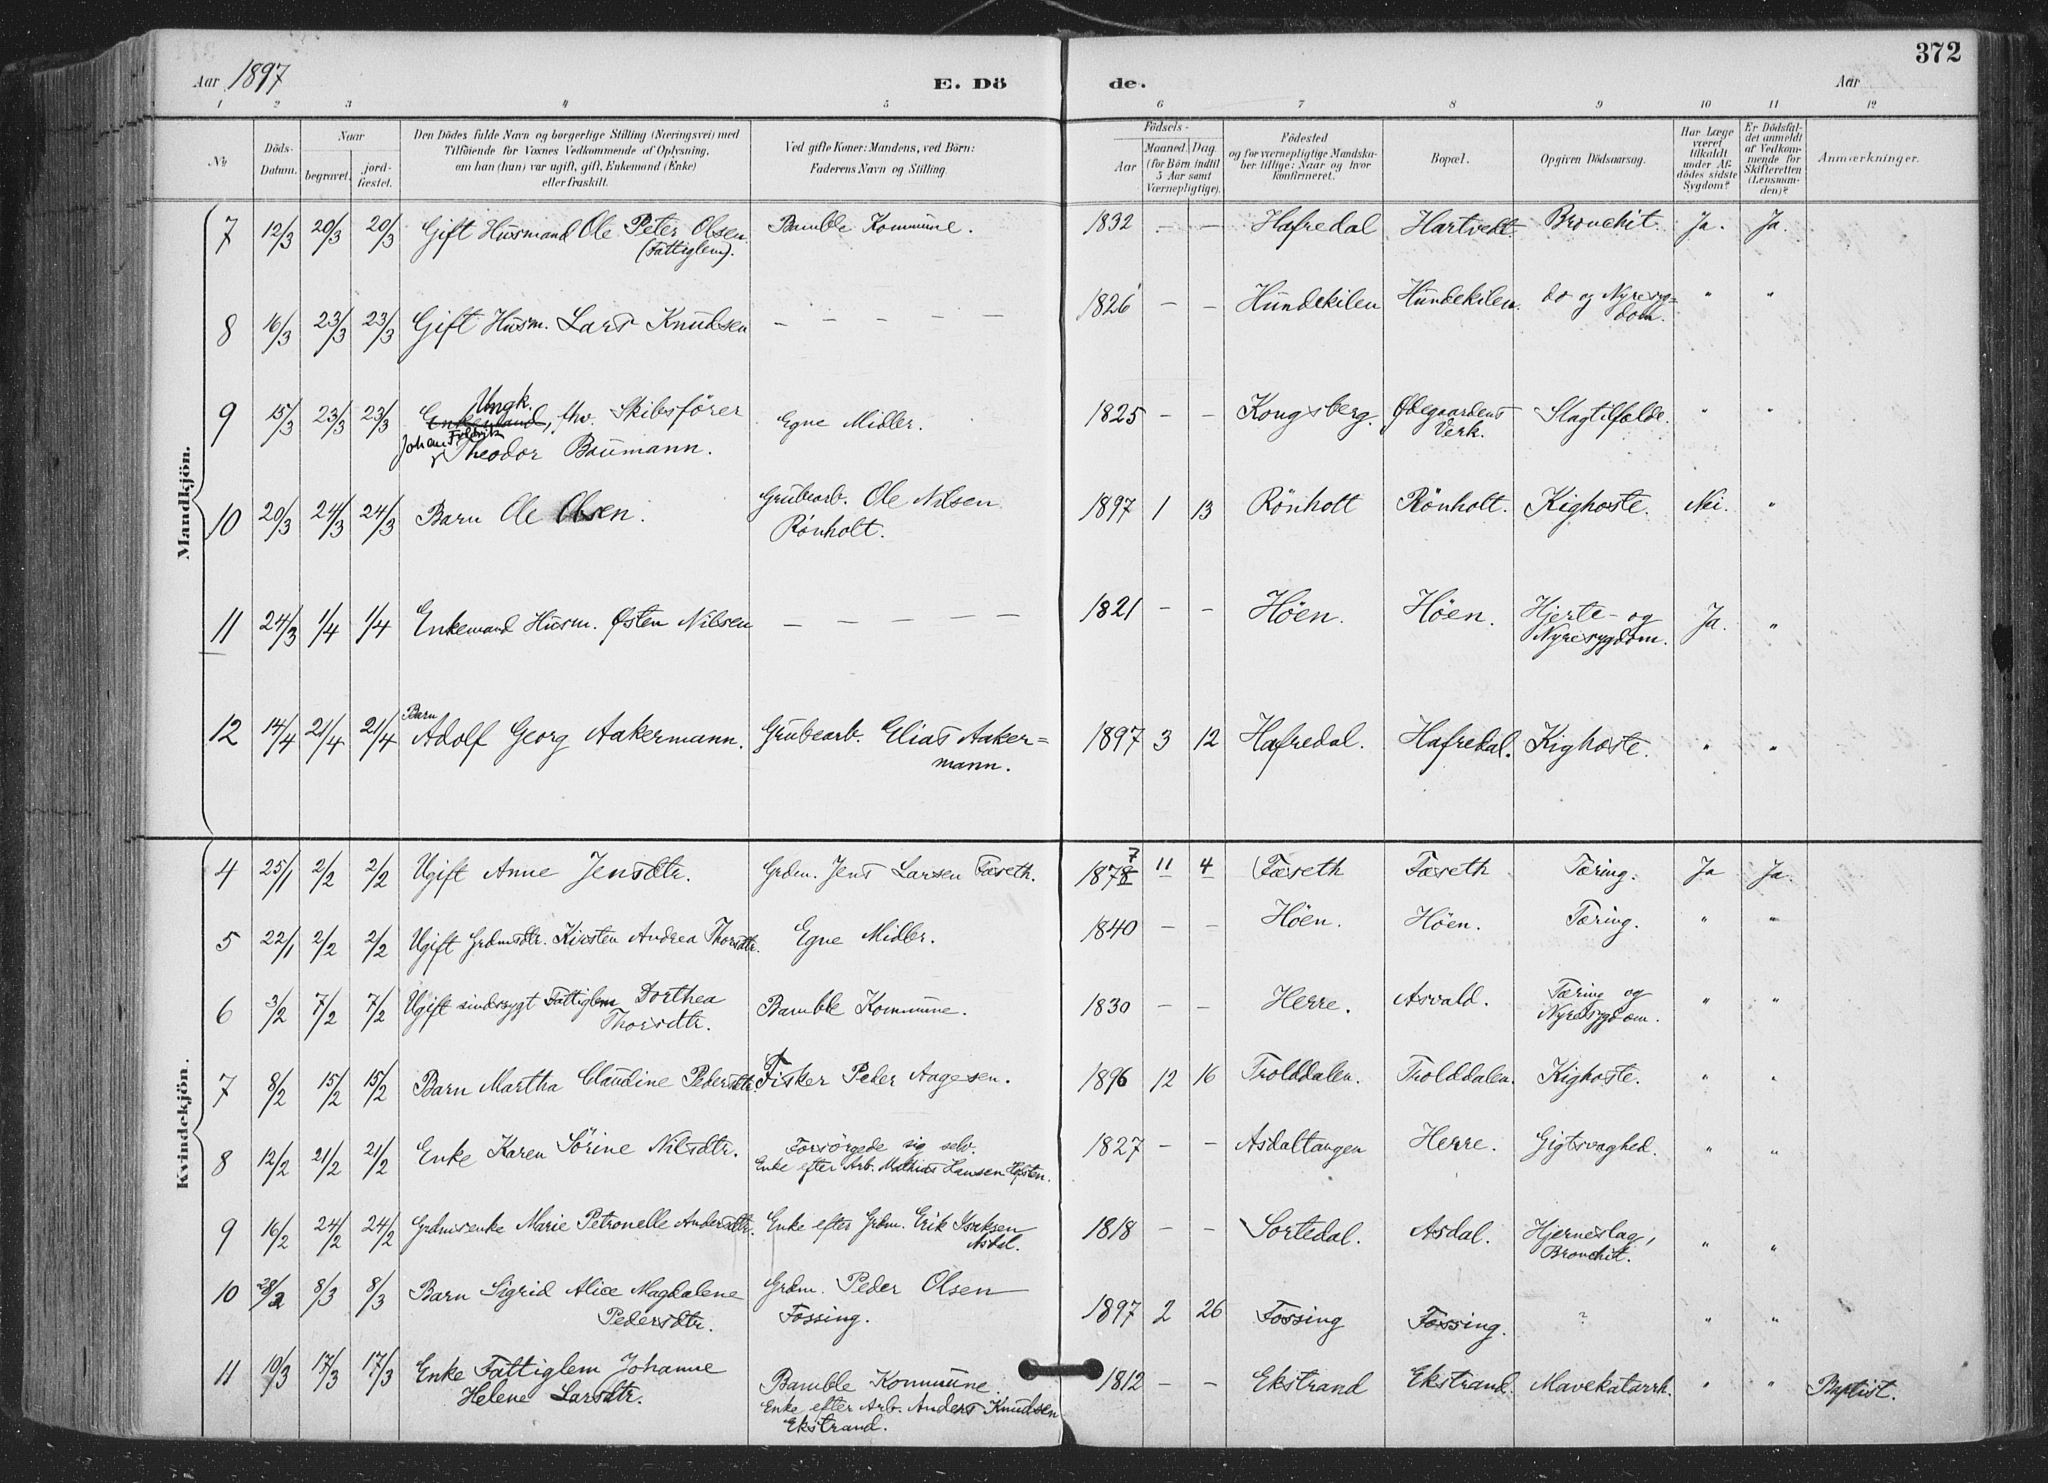 372
Aar 1897 E. Dö de. Aar
1 2 3 4 5 6 7 8 9 10 11 12
No
Döds-Datum.
Naar
begravet. jordfæstet.
Den Dödes fulde Navn og borgerlige Stilling (Næringsvei) med
Tilföiende for Voxnes Vedkommende af Oplysning,
om han (hun) var ugift, gift, Enkemand (Enke)
eller fraskilt.
Ved gifte Koner: Mandens, ved Börn:
Faderens Navn og Stilling.
Födsels-
Aar Maaned. Dag.
(for Börn indtil
5 Aar samt
Værnepligtige).
Födested
og for værnepligtige Mandska-
ber tillige: Naar og hvor
konfirmeret.
Bopæl.
Opgiven Dödsaarsag.
Har Læge
været
tilkaldt
under Af-
dödes sidste
Sygdom?
Er Dödsfal-
det anmeldt
af Vedkom-
mende for
Skifteretten
(Lensman-
den)?
Anmærkninger.
Mandkjön.
7 12/3 20/3 20/3 Gift Husmand Ole Peter Olsen Bamble Kommune. 1832 — — Hafredal Hartvedt. Bronchit. Ja. Ja.
(Fattiglem).
8 16/3 23/3 23/3 Gift Husm. Lars Knudsen — — — — — 1826 — — Hundekilen Hundekilen. do og Nyresyg= " "
dom.
Ungk.
9 15/3 23/3 23/3 Enkemand, fhv. Skibsförer Egne Midler. 1825 — — Kongsberg. Ødegaardens Slagtilfælde. " "
Johan Fredrik Verk.
Theodor Baumann.
10 20/3 24/3 24/3 Barn Ole Olsen. Grubearb. Ole Nilsen 1897 1 13 Rönholt Rönholt. Kighoste. Nei. "
Rönholt.
11 24/3 1/4 1/4 Enkemand Husm. Østen Nilsen — — — — — 1821 — — Höen. Höen. Hjerte- og Ja. "
Nyresygdom.
Barn
12 14/4 21/4 21/4 Adolf Georg Aakermann. Grubearb. Elias Aaker= 1897 3 12 Hafredal. Hafredal. Kighoste. " "
mann.
Kvindekjön.
7
4 25/1 2/2 2/2 Ugift Anne Jensdtr. Grdm. Jens Larsen Fæseth. 1878 11 4 Fæseth Fæseth Tæring. Ja Ja.
5 22/1 2/2 2/2 Ugift Grdmsdtr. Kirsten Andrea Thorsdtr. Egne Midler. 1840 — — Höen. Höen. Tæring. " "
6 3/2 7/2 7/2 Ugift sindssygt Fattiglem Dorthea Bamble Kommune. 1830 — — Herre. Asvald. Tæring og " "
Thorsdtr. Nyresygdom.
7 8/2 15/2 15/2 Barn Martha Claudine Pedersdtr. Fisker Peder Aagesen. 1896 12 16 Trolddalen. Trolddalen. Kighoste. " "
8 12/2 21/2 21/2 Enke Karen Sörine Nilsdtr. Forsörgede sig selv. 1827 — — Asdaltangen Herre. Gigtsvaghed. " "
Enke efter Arb. Mathias Hansen
9 16/2 24/2 24/2 Grdmsenke Marie Petronelle Andersdtr. Enke efter Grdm. Erik Isaksen 1818 — — Sortedal. Asdal. Hjerneslag, " "
Asdal. Bronchit.
10 28/2 8/3 8/3 Barn Sigrid Alice Magdalene Grdm. Peder Olsen 1897 2 26 Fossing Fossing. ? " "
Pedersdtr. Fossing.
11 10/3 17/3 17/3 Enke Fattiglem Johanne Bamble Kommune. 1812 — — Ekstrand Ekstrand. Mavekatarrh. " " Baptist.
Helene Larsdtr. Enke efter Arb. Anders Knudsen
Ekstrand.